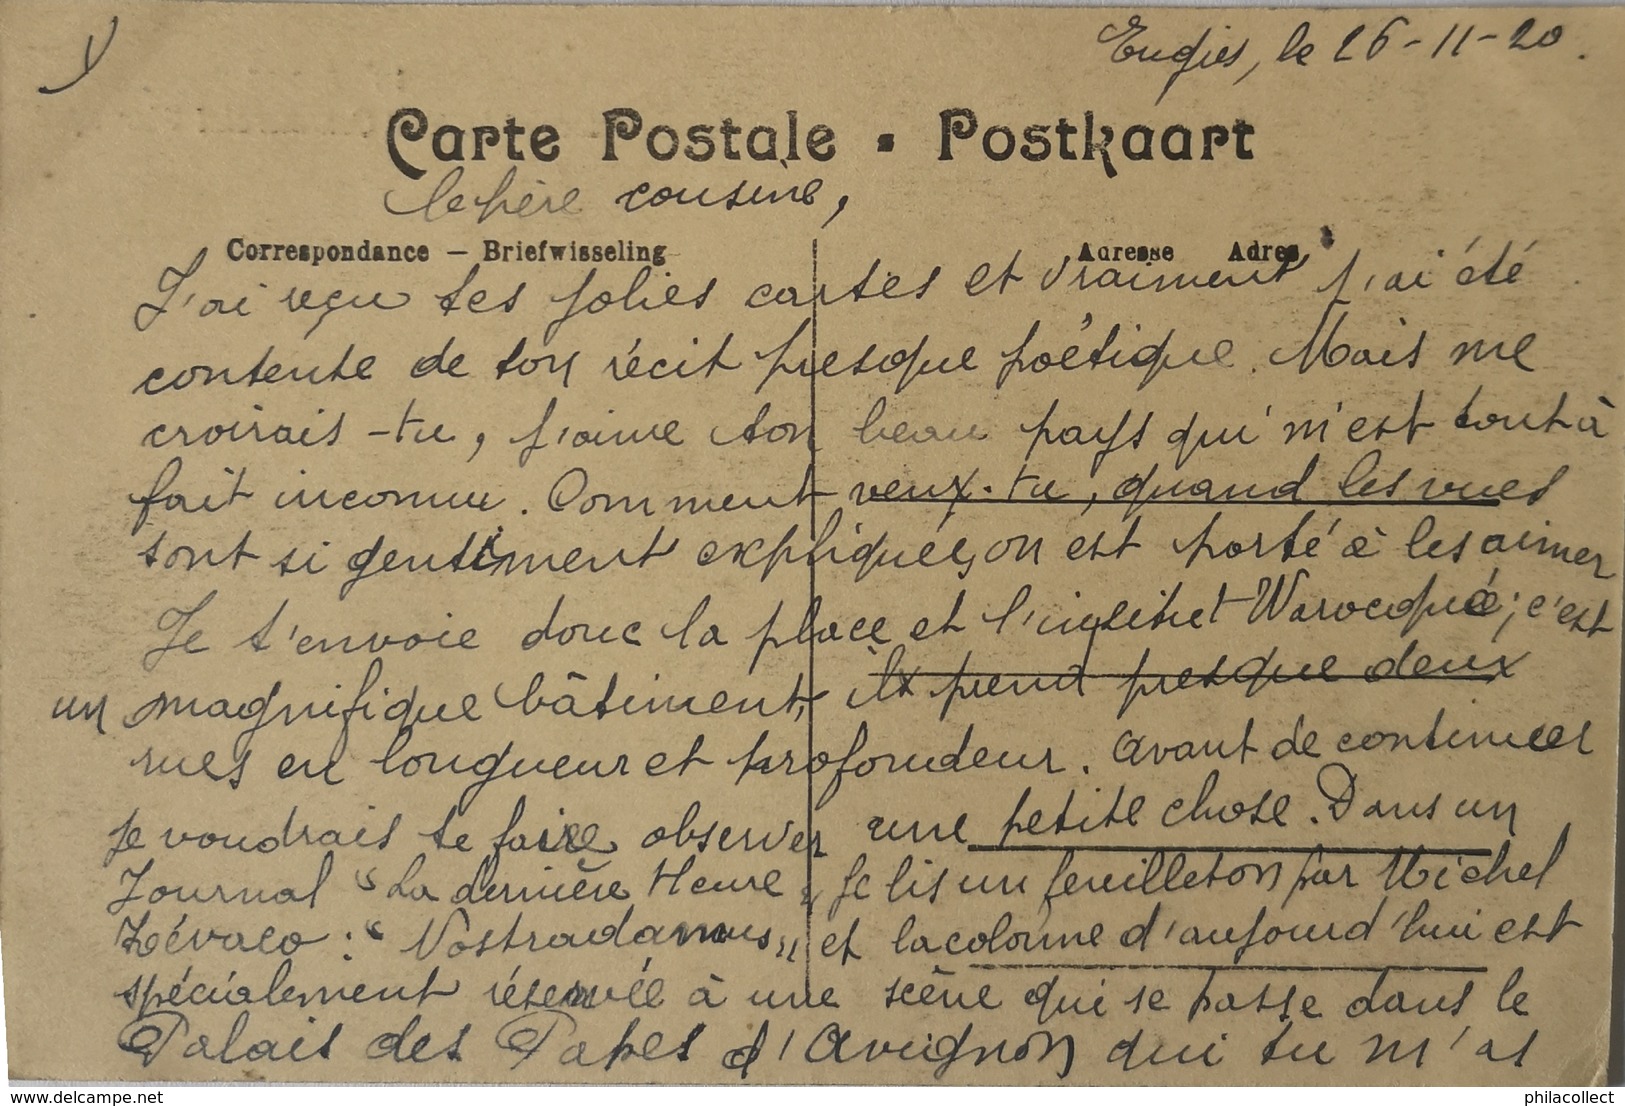 Engies, le 26-11-20.
Carte Postale - Postkaart
Chère cousine,
Correspondance – Briefwisseling
Adresse Adres
J'ai reçu tes jolies cartes et vraiment j'ai été
contente de ton récit presque poétique. Mais me
croirais-tu, j'aime ton beau pays qui m'est tout à
fait inconnu. Comment veux-tu, quand les vues
sont si gentiment expliquées, on est porté à les aimer
Je t'envoie donc la place et l'institut Warocqué; c'est
un magnifique bâtiment, il prend presque deux
rues en longueur et profondeur. Avant de continuer
je voudrais te faire observer une petite chose. Dans un
Journal "La dernière Heure" je lis un feuilleton par Michel
Zévaco : "Nostradamus" et la colonne d'aujourd'hui est
spécialement réservée à une scène qui se passe dans le
Palais des Papes d'Avignon qui tu m'as
www.delcampe.net
philacollect